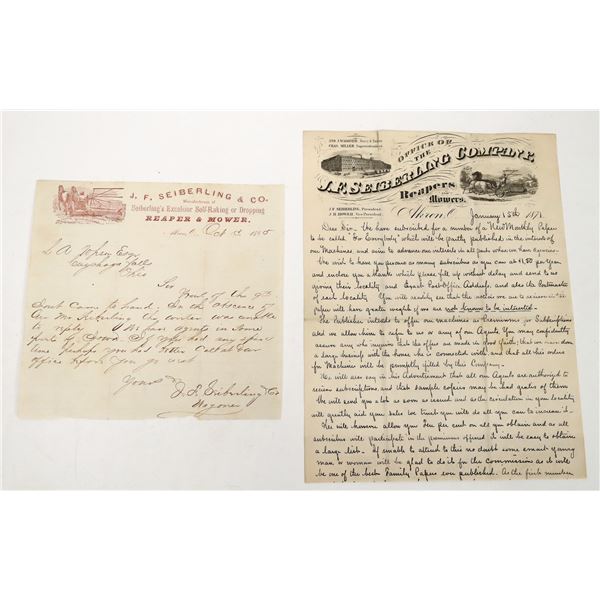 J. F. SEIBERLING & CO.
Manufacturers of
Seiberling's Excelsior Self-Raking or Dropping
REAPER & MOWER.
Oct
L A Esq
Cuyahoga Falls
Ohio
Sir
Yours of the 9th
Came to hand. In the absence of
Mr Seiberling the writer was unable
to reply. We have agents in some
parts of Iowa. If you had any spare
time perhaps you had better call at our
office before you go west
Yours
J. F. Seiberling & Co
OFFICE OF
THE
J. F. SEIBERLING COMPANY,
Reapers
Mowers.
CHAS. MILLER Superintendent
J. F. SEIBERLING, President
J. H. HOWER, Vice-President
Akron, O. January 15th 187
Dear Sir. We have subscribed for a number of a New Monthly Paper
to be called "For Everybody" which will be partly published in the interests of
our Machines and aim to advance our interests in all parts where we have Agencies.
We wish to have you procure as many subscribers as you can at $1.50 per Year
and enclose you a blank which please fill up without delay and send to us
giving their locality and Post Office Address, and also the Postmaster
of each locality. You will readily see that the
paper will have greater weight if we are not known to be interested.
The Publisher intends to offer our machines as Premiums for Subscriptions
and we allow him to refer to us or any of our Agents. You may confidently
assure any who inquire that the offer is made in good faith, that we have done
a large business with the house he is connected with, and that all his orders
for Machines will be promptly filled by this Company.
We will also say in this Advertisement that all our Agents are authorized to
receive subscriptions, and that sample copies may be had gratis of them
We will send you a lot as soon as issued, and as the circulation in your locality
will greatly aid your sales we trust you will do all you can to increase it.
We will allow you Ten per cent on all you obtain and as all
subscribers will participate in the premiums offered it will be easy to obtain
a large list. If unable to attend to this no doubt some smart young
man or woman will be glad to do it for the commission as it will
be one of the best Family Papers ever published. As the first number